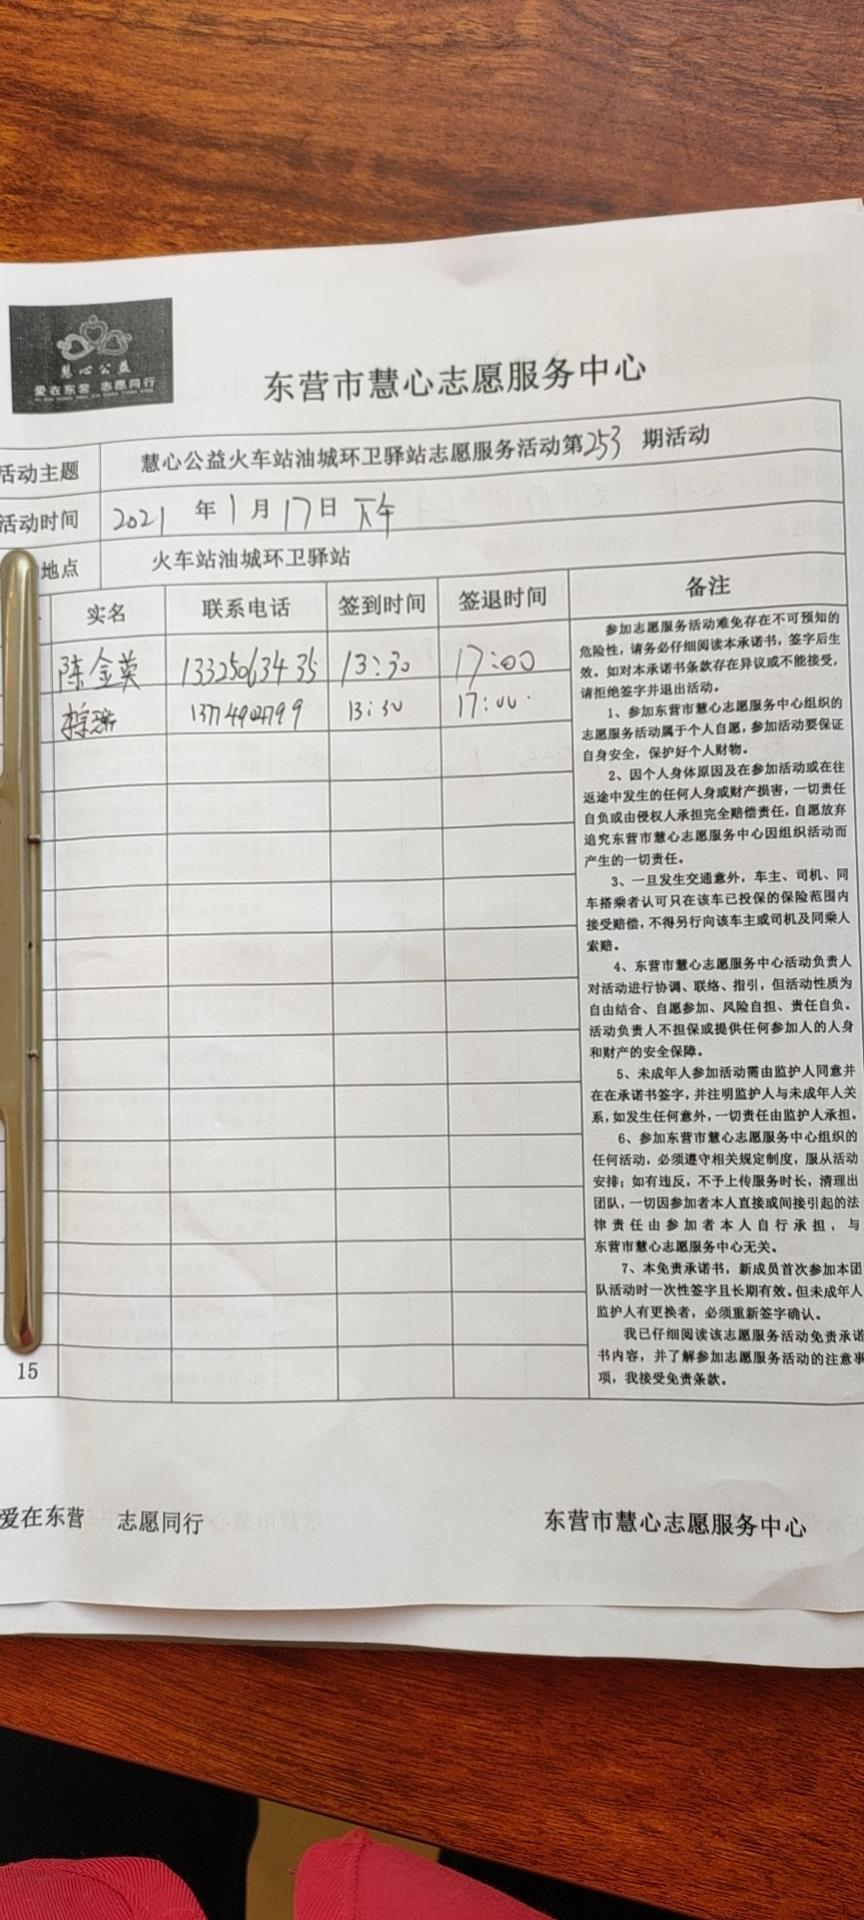 慧心公益
爱在东营 志愿同行
东营市慧心志愿服务中心
活动主题 慧心公益火车站油城环卫驿站志愿服务活动第253期活动
活动时间 2021年1月17日下午
地点 火车站油城环卫驿站
实名 联系电话 签到时间 签退时间 备注
陈金英 13325063435 13:30 17:00
13:30 17:00
参加志愿服务活动难免存在不可预知的
危险性，请务必仔细阅读本承诺书，签字后生
效。如对本承诺书条款存在异议或不能接受，
请拒绝签字并退出活动。
1、参加东营市慧心志愿服务中心组织的
志愿服务活动属于个人自愿，参加活动要保证
自身安全，保护好个人财物。
2、因个人身体原因及在参加活动或在往
返途中发生的任何人身或财产损害，一切责任
自负或由侵权人承担完全赔偿责任，自愿放弃
追究东营市慧心志愿服务中心因组织活动而
产生的一切责任。
3、一旦发生交通意外，车主、司机、同
车搭乘者认可只在该车已投保的保险范围内
接受赔偿，不得另行向该车主或司机及同乘人
索赔。
4、东营市慧心志愿服务中心活动负责人
对活动进行协调、联络、指引，但活动性质为
自由结合、自愿参加、风险自担、责任自负。
活动负责人不担保或提供任何参加人的人身
和财产的安全保障。
5、未成年人参加活动需由监护人同意并
在在承诺书签字，并注明监护人与未成年人关
系，如发生任何意外，一切责任由监护人承担。
6、参加东营市慧心志愿服务中心组织的
任何活动，必须遵守相关规定制度，服从活动
安排；如有违反，不予上传服务时长，清理出
团队，一切因参加者本人直接或间接引起的法
律责任由参加者本人自行承担，与
东营市慧心志愿服务中心无关。
7、本免责承诺书，新成员首次参加本团
队活动时一次性签字且长期有效。但未成年人
监护人有更换者，必须重新签字确认。
我已仔细阅读该志愿服务活动免责承诺
书内容，并了解参加志愿服务活动的注意事
项，我接受免责条款。
15
爱在东营 志愿同行 东营市慧心志愿服务中心